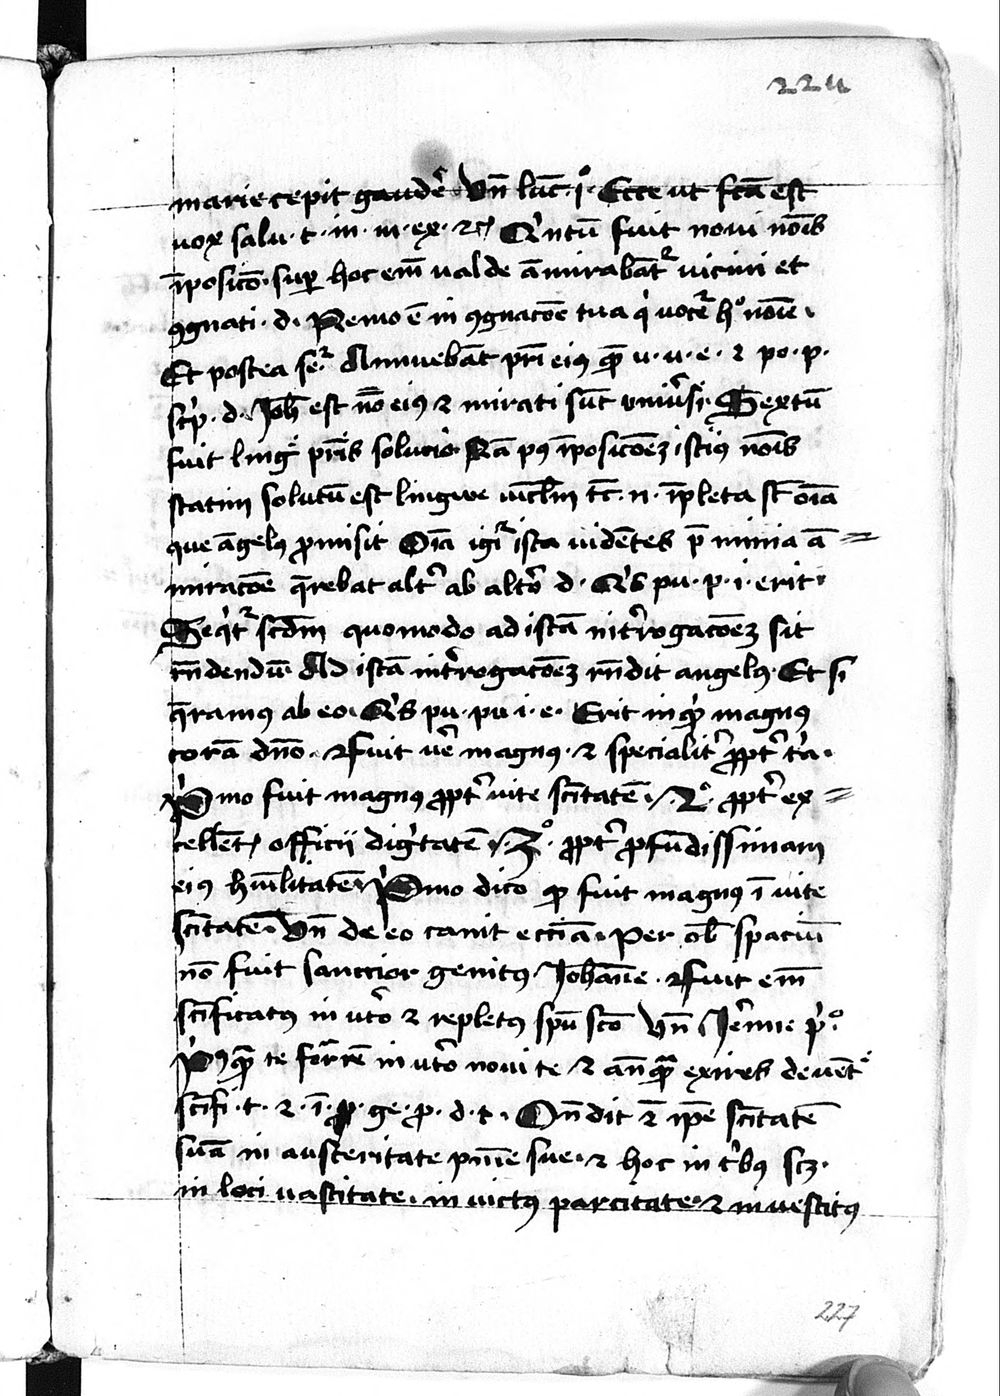 224
marie cepit gaudē Vn̄ luc̄ · i° · Ecce ut fcā est
uox salu · t · in · m · ex · ꝛc̄ Qͥntū fuit noui noīs
īposicō · suꝑ hoc em̄ ualde āmirabāt᷑ uicini et
ꝯgnati · d · Nemo ē in ꝯgnacōe tua qͥ uocet᷑ hͦ noīe ·
Et postea se᷑ Annuebāt pr̄i eiꝰ qp̄ u · u · e · ⁊ po · p ·
scͥp · d · Joh̄ est nō eiꝰ ⁊ mirati sūt uniu͛si · Sextū
fuit lingͣ pr̄is solucio Nā pꝰ īposicōeꝫ istiꝰ noīs
statim solutū est lingwe uīcl̄m tc̄ · n · īpleta st̄ oīa
que āgelꝰ ꝓmisit Oīa igi᷑ ista uidētes p̄ nimia ā =
miracōe q̄rebat alt͛ ab alt͛o d · Qͥs pu · p · i · erit ·
Seqͥt᷑ scd̄m quomodo ad istā int͛rogacōeꝫ sit
rn̄dendū · Ad istā int͛rogacōeꝫ rn̄dit angelꝰ · Et si
q̄ramꝰ ab eo · Qͥs pu · pu · i · e · Erit inqͥ magnꝰ
corā dn̄o · ⁊ fuit ue͛ magnꝰ · ⁊ specialit͛ ꝓpt͛ tͥa ·
Pͥmo fuit magnꝰ ꝓpt͛ uite sc̄itatē · 2° · ꝓpt͛ ex =
cellēt officii digͥtatē · 3° · ꝓpt͛ ꝓfūdissimam
eiꝰ hūilitatē Pͥmo dico ꝙ fuit magnꝰ ī uite
sc̄itatē · Vn̄ de eo canit ecc̄ia · Per ob̄ spaciū
nō fuit sanctior genitꝰ Johāne · ⁊ fuit em̄
sc̄ificatꝰ in ut͛o ⁊ repletꝰ spū scō Vn̄ Je͛mie pͥ°
Pͥusqͣ te fōrārē in ut͛o noui te ⁊ an̄qͣ exires de uētͤ
sc̄ifi · t · ⁊ · ī · ꝓ · ge · ꝓ · d · t · On̄dit ⁊ ip̄e sc̄itatē
suā in austeritate pn̄ie sue · ⁊ hoc in tͥbꝰ scꝫ ·
in loci uastitate · in uictꝰ parcitate · ⁊ in uestitꝰ
227